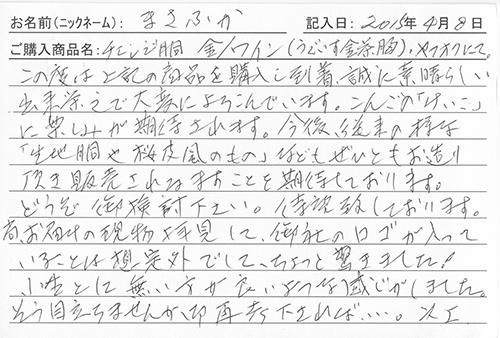 お名前(ニックネーム): まさふか 記入日: 2015年4月8日
ご購入商品名: チャレンジ胴 金/ワイン (うぐいす金茶胸), ヤフオクにて。
この度は上記の商品を購入し到着、誠に素晴らしい
出来栄えで大変によろこんでいます。こんごの「けいこ」
に楽しみが期待されます。今後、従来の様な
「生地胴や桜皮風のもの」などもぜひともお造り
頂き販売されますことを期待しております。
どうぞ御検討下さい。待望致しております。
尚、お届けの現物を拝見して、御社のロゴが入って
いることは想定外でして、ちょっと驚きました!
小生としては無い方が良いような感じがしました。
そう目立ちませんが、切 再考下されば…。以上